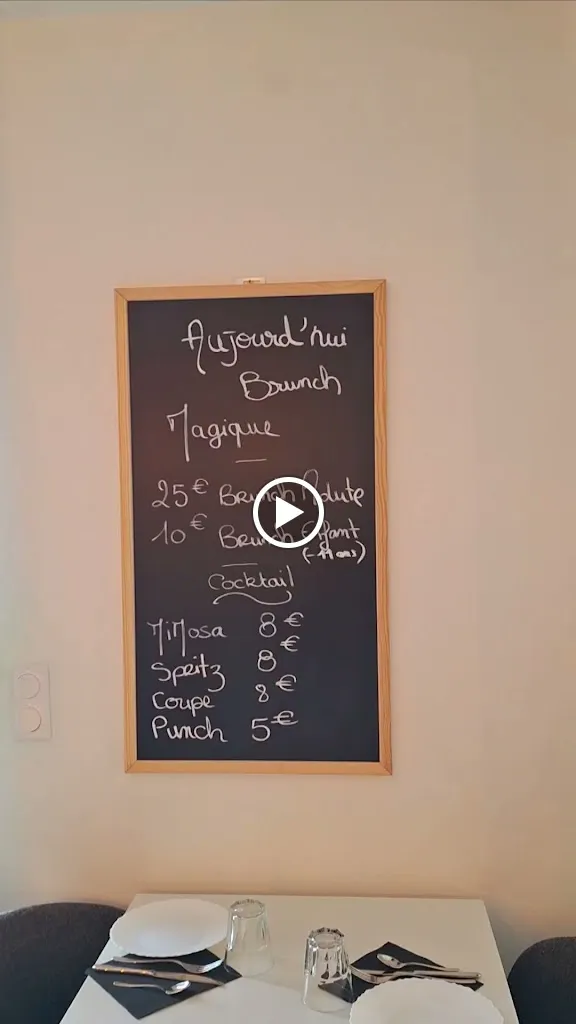 Aujourd'hui
Brunch
Magique
25€ Brunch Adulte
10€ Brunch Enfant
(-11 ans)
Cocktail
Mimosa 8€
Spritz 8€
Coupe 8€
Punch 5€